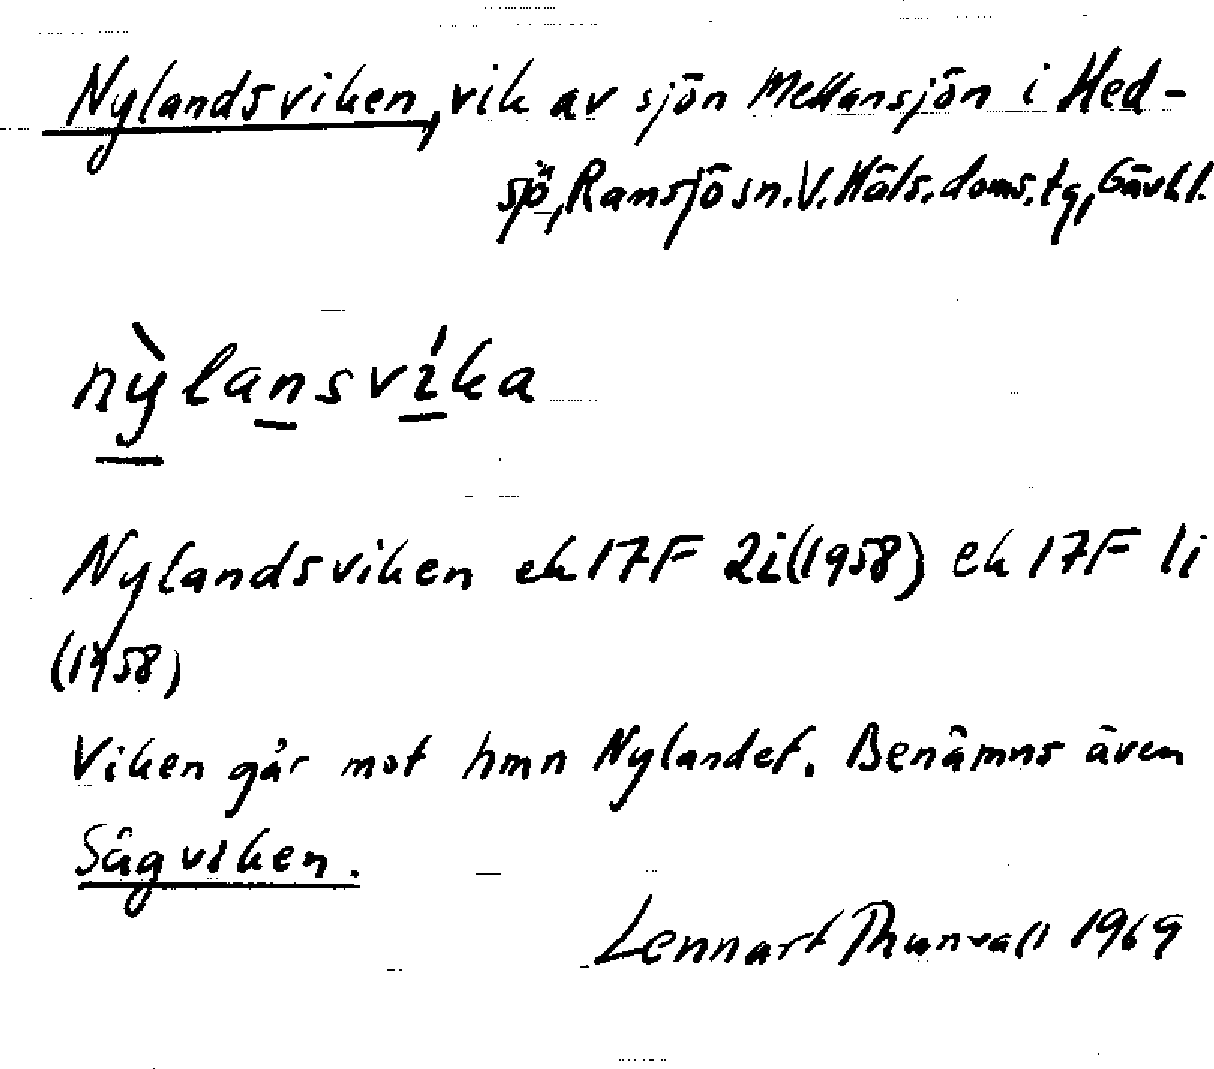 Nylandsviken, vik av sjön Mellansjön i Hed-
sjö, Ramsjö sn. V. Häls. doms. tg, Gävl.l.
nỳlansvı́ka
Nylandsviken ek 17F 2i (1958) ek 17F 1i
(1958)
Viken går mot hmn Nylandet. Benämns även
Sågviken.
Lennart Thunvall 1969